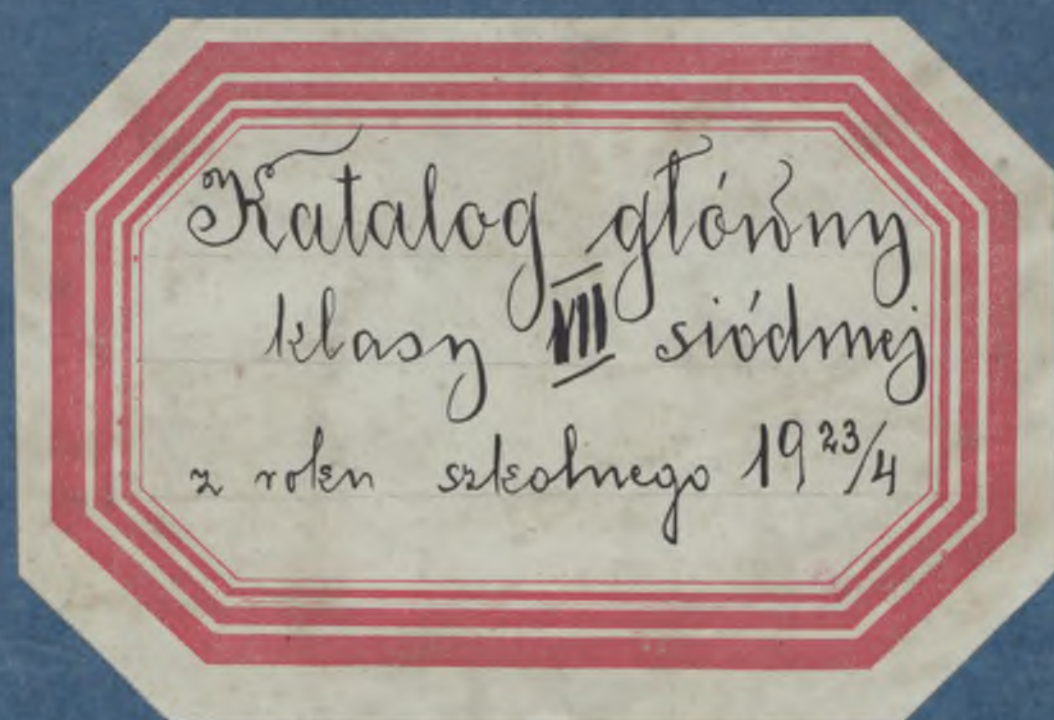 Katalog główny
klasy VII siódmej
z roku szkolnego 1923/4